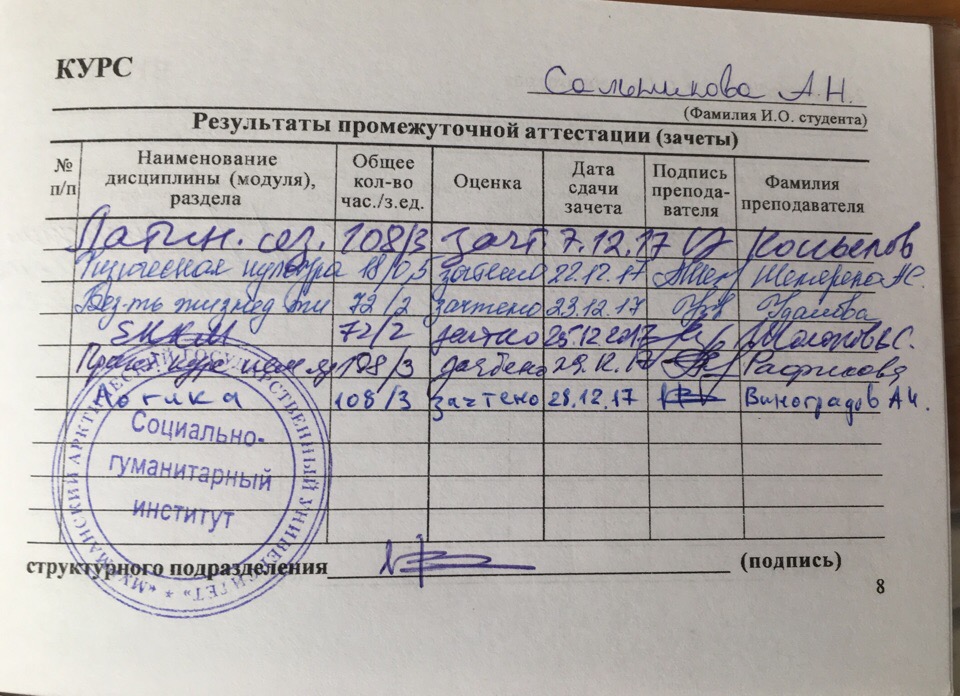 КУРС
Сальникова А.Н.
(Фамилия И.О. студента)
Результаты промежуточной аттестации (зачеты)
№ п/п
Наименование дисциплины (модуля), раздела
Общее кол-во час./з.ед.
Оценка
Дата сдачи зачета
Подпись препода-вателя
Фамилия преподавателя
Латин. яз. 108/3 зачт 7.12.17 Копылов
Физическая культура 18/0,5 зачтено 22.12.17
Без-ть жизнед-ти 72/2 зачтено 23.12.17 Удалова
ЕНКМ 72/2 25.12.2017
108/3 29.12.17 Рафикова
Логика 108/3 зачтено 28.12.17 Виноградов А.И.
«МУРМАНСКИЙ АРКТИЧЕСКИЙ ГОСУДАРСТВЕННЫЙ УНИВЕРСИТЕТ» *
Социально-
гуманитарный
институт
структурного подразделения (подпись)
8